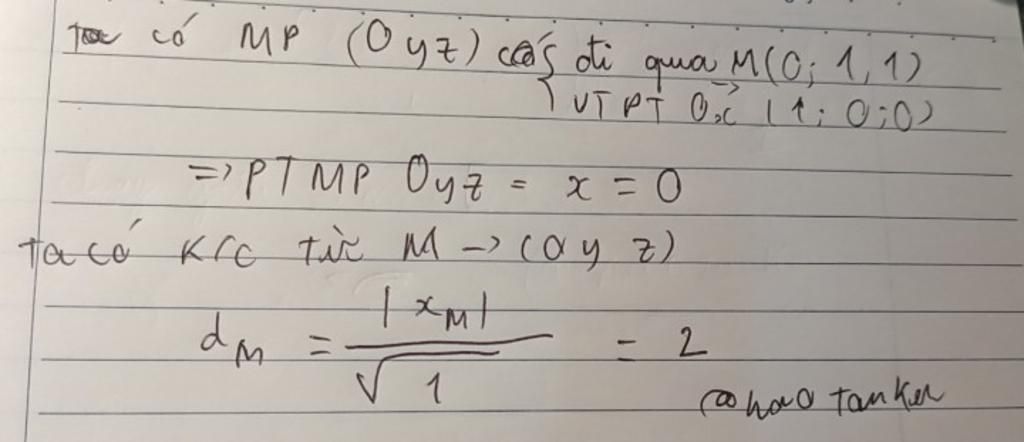 ta có MP (Oyz) có { đi qua M(0; 1, 1)
VTPT Ox (1; 0; 0)
=> PT MP Oyz = x = 0
Ta có K/c từ M -> (Oyz)
d_M = |x_M| / √1 = 2
@haotanker